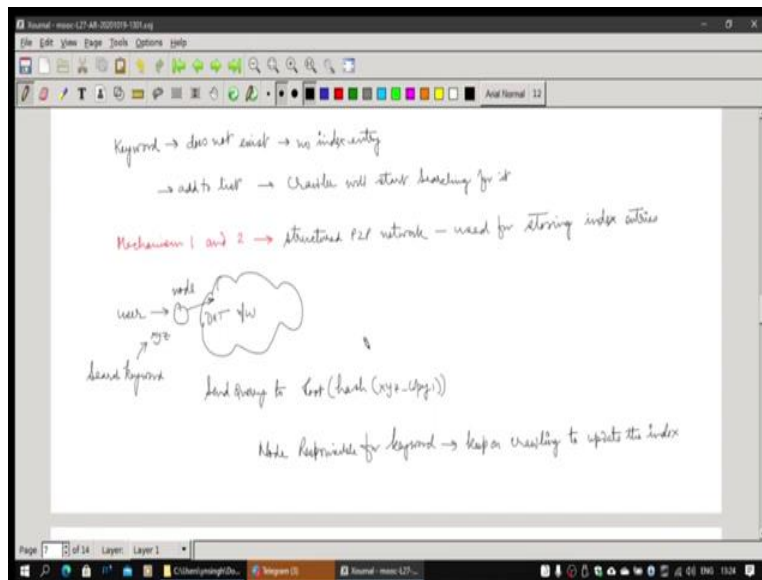 Xournal - mooc-L27-AR-20201019-1301.xoj
File Edit View Page Tools Options Help
Arial Normal 12
Keyword → does not exist → no index entry
→ add to list → Crawler will start searching for it
Mechanism 1 and 2 → structured P2P network — used for storing index entries
node
user → DHT N/W
xyz
Search keyword
Send query to root (hash (xyz-copy1))
Node Responsible for keyword → keep on crawling to update the index
Page 7 of 14 Layer: Layer 1
C:\Users\ynsingh\Do... Telegram (3) Xournal - mooc-L27-... ENG 13:24